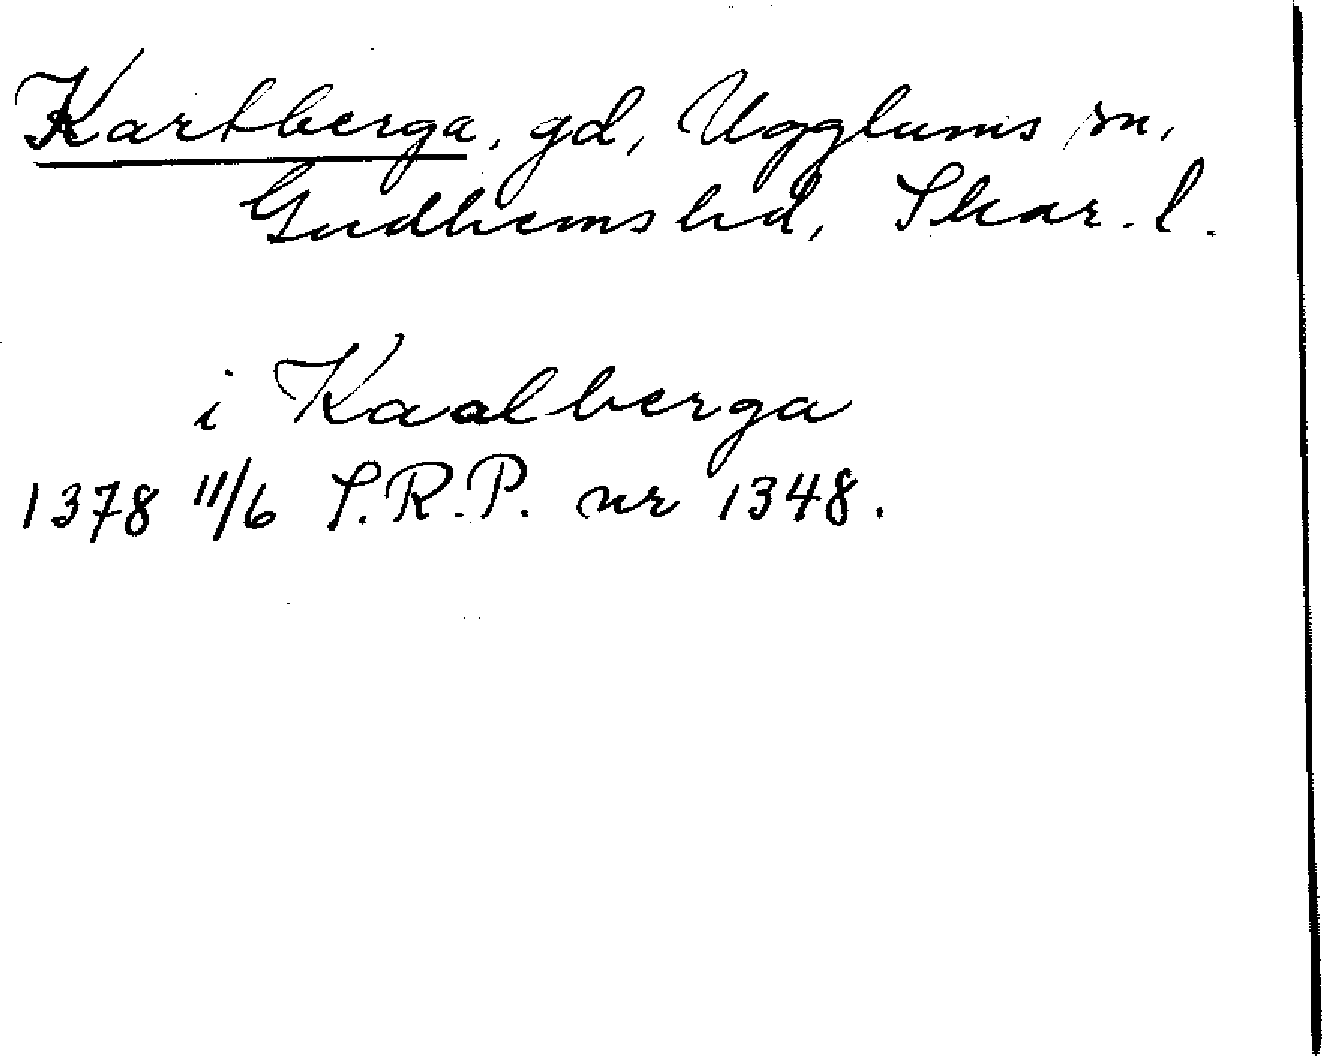 Kartberga, gd, Ugglums sn,
Gudhems hd, Skar. l.
i Kaalberga
1378 11/6 S.R.P. nr 1348.